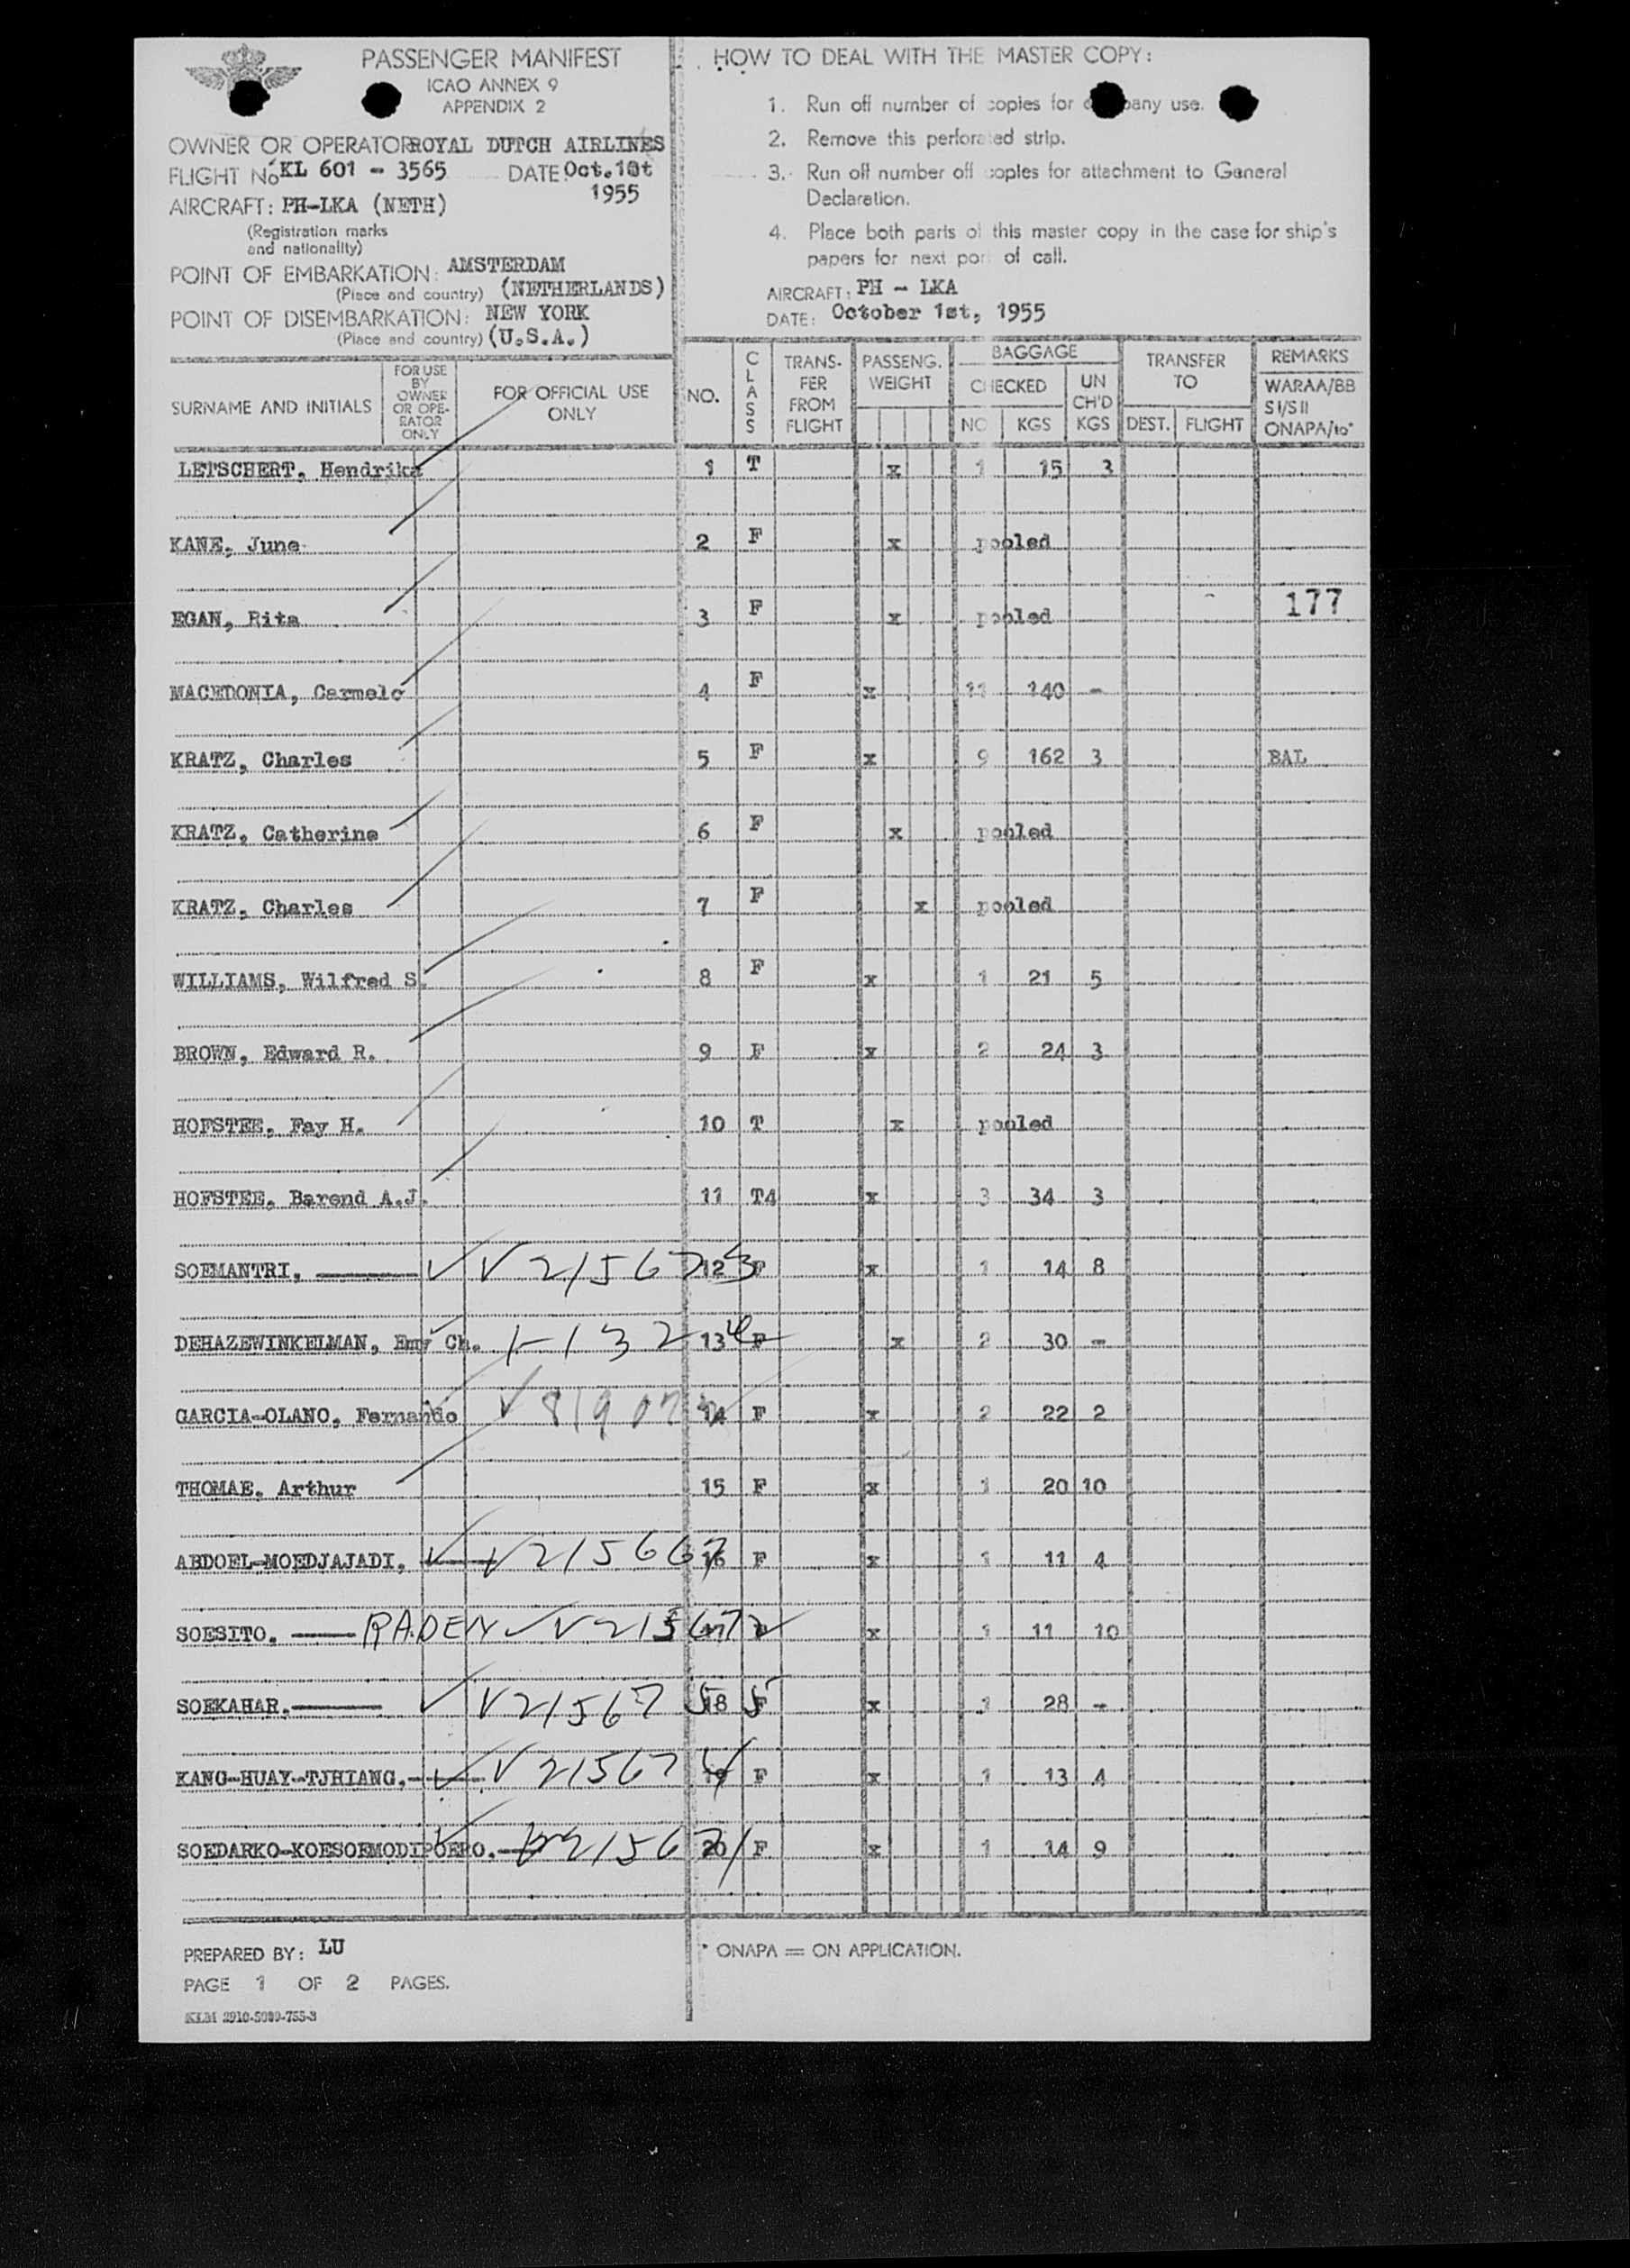 PASSENGER MANIFEST
ICAO ANNEX 9
APPENDIX 2
OWNER OR OPERATOR ROYAL DUTCH AIRLINES
FLIGHT No KL 601 - 3565 DATE Oct. 1st 1955
AIRCRAFT: PH-LKA (NETH)
(Registration marks
and nationality)
POINT OF EMBARKATION: AMSTERDAM
(Place and country) (NETHERLANDS)
POINT OF DISEMBARKATION: NEW YORK
(Place and country) (U.S.A.)
HOW TO DEAL WITH THE MASTER COPY:
1. Run off number of copies for company use.
2. Remove this perforated strip.
3. Run off number off copies for attachment to General
Declaration.
4. Place both parts of this master copy in the case for ship's
papers for next port of call.
AIRCRAFT: PH - LKA
DATE: October 1st, 1955
SURNAME AND INITIALS FOR USE BY OWNER OR OPE-RATOR ONLY FOR OFFICIAL USE ONLY NO. CLASS TRANS-FER FROM FLIGHT PASSENG. WEIGHT BAGGAGE CHECKED NO KGS UN CH'D KGS TRANSFER TO DEST. FLIGHT REMARKS WARAA/BB SI/SII ONAPA/to*
LETSCHERT, Hendrika 1 T x 1 15 3
KANE, June 2 F x pooled
EGAN, Rita 3 F x pooled 177
MACEDONIA, Carmelo 4 F x 11 140 -
KRATZ, Charles 5 F x 9 162 3 BAL
KRATZ, Catherine 6 F x pooled
KRATZ, Charles 7 F x pooled
WILLIAMS, Wilfred S. 8 F x 1 21 5
BROWN, Edward R. 9 F x 2 24 3
HOFSTEE, Fay H. 10 T x pooled
HOFSTEE, Barend A.J. 11 T4 x 3 34 3
SOEMANTRI, V215673 12 F x 1 14 8
DEHAZEWINKELMAN, Emy Ch. 13 F x 2 30 -
GARCIA-OLANO, Fernando 14 F x 2 22 2
THOMAE, Arthur 15 F x 1 20 10
ABDOEL-MOEDJAJADI, V215667 16 F x 1 11 4
SOESITO, RADEN V215672 x 1 11 10
SOEKAHAR, 18 F x 1 28 -
KANG-HUAY-TJHIANG, V215674 19 F x 1 13 4
SOEDARKO-KOESOEMODIPOERO, V215671 20 F x 1 14 9
PREPARED BY: LU
PAGE 1 OF 2 PAGES.
* ONAPA = ON APPLICATION.